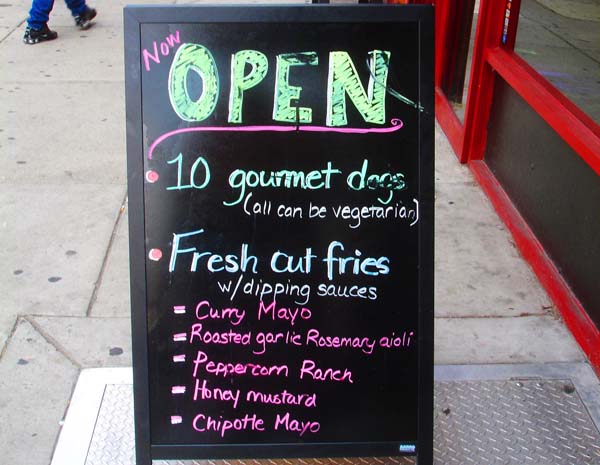 Now
OPEN
10 gourmet dogs
(all can be vegetarian)
Fresh cut fries
w/dipping sauces
= Curry Mayo
= Roasted garlic Rosemary aioli
= Peppercorn Ranch
= Honey mustard
= Chipotle Mayo